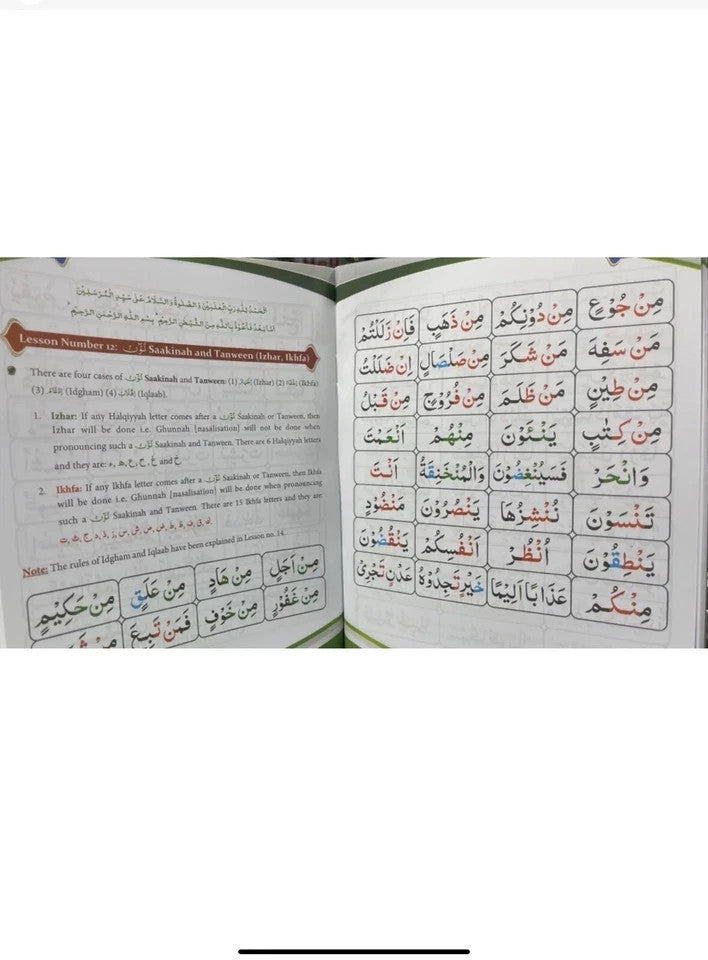 اَلْحَمْدُ لِلّٰهِ رَبِّ الْعٰلَمِيْنَ وَ الصَّلٰوةُ وَ السَّلَامُ عَلٰى سَيِّدِ الْمُرْسَلِيْنَ
اَمَّا بَعْدُ فَاَعُوْذُ بِاللّٰهِ مِنَ الشَّيْطٰنِ الرَّجِيْمِ ؕ بِسْمِ اللّٰهِ الرَّحْمٰنِ الرَّحِيْمِ ؕ
Lesson Number 12: نُوْن Saakinah and Tanween (Izhar, Ikhfa)
There are four cases of نُوْن Saakinah and Tanween: (1) اِظْہَار (Izhar) (2) اِخْفَاء (Ikhfa)
(3) (Idgham) (4) (Iqlaab).
1. Izhar: If any Halqiyyah letter comes after a نُوْن Saakinah or Tanween, then
Izhar will be done i.e. Ghunnah [nasalisation] will not be done when
pronouncing such a نُوْن Saakinah and Tanween. There are 6 Halqiyyah letters
and they are: ء, ھ, ع, ح, غ and خ
2. Ikhfa: If any Ikhfa letter comes after a نُوْن Saakinah or Tanween, then Ikhfa
will be done i.e. Ghunnah [nasalisation] will be done when pronouncing
such a نُوْن Saakinah and Tanween. There are 15 Ikhfa letters and they are
ت, ث, ج, د, ذ, ز, س, ش, ص, ض, ط, ظ, ف, ق, ك.
Note: The rules of Idgham and Iqlaab have been explained in Lesson no. 14.
مِنْ اَجَلٍ مِنْ هَادٍ مِنْ عَلَقٍ مِنْ حَكِيْمٍ
مِنْ غَفُوْرٍ مِنْ خَوْفٍ فَمَنْ تَبِعَ
مِنْ جُوْعٍ مِنْ دُوْنِكُمْ مِنْ ذَهَبٍ فَاِنْ زَلَلْتُمْ
مَنْ سَفِهَ مَنْ شَكَرَ مِنْ صَلْصَالٍ اِنْ ضَلَلْتُ
مِنْ طِيْنٍ مَنْ ظَلَمَ مِنْ فُرُوْجٍ مِنْ قَبْلُ
مِنْ كِتٰبٍ يَنْـَٔوْنَ مِنْهُمْ اَنْعَمْتَ
وَانْحَرْ فَسَيُنْغِضُوْنَ وَالْمُنْخَنِقَةُ اَنْتَ
تَنْسَوْنَ نُنْشِزُهَا يَنْصُرُوْنَ مَنْضُوْدٍ
يَنْطِقُوْنَ اُنْظُرْ اَنْفُسِكُمْ يَنْقُضُوْنَ
مِنْكُمْ عَذَابًا اَلِيْمًا خَيْرٍ تَجِدُوْهُ عَدْنٍ تَجْرِىْ